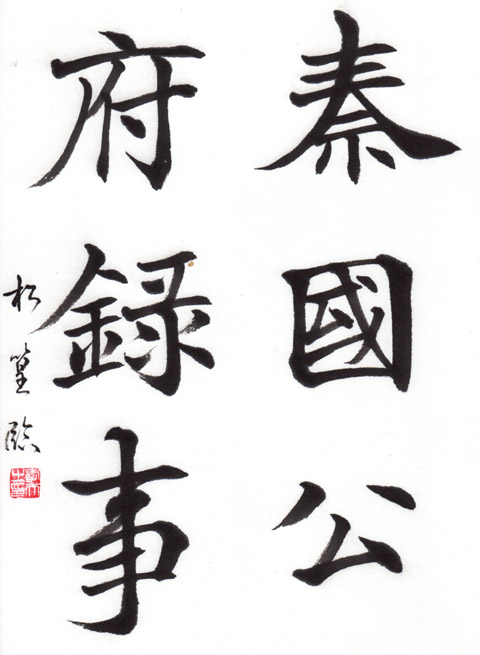 秦國公
府録事
松篁臨